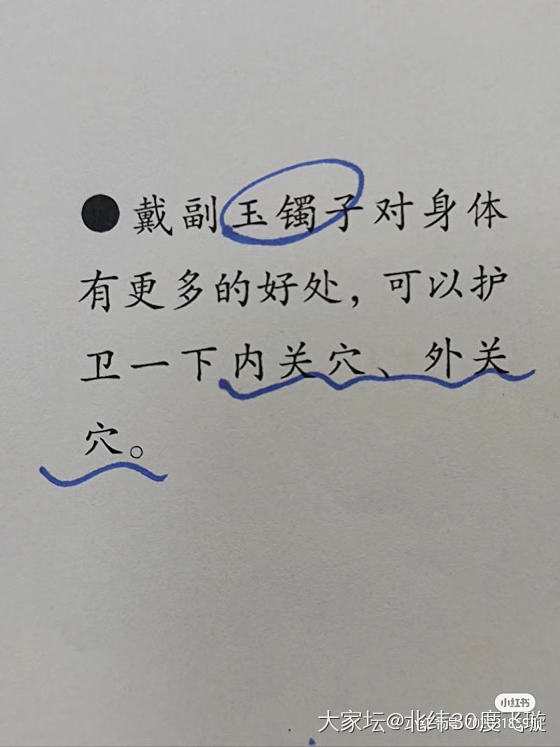 ●戴副玉镯子对身体
有更多的好处，可以护
卫一下内关穴、外关
穴。
小红书
大家坛@北纬30度飞漩